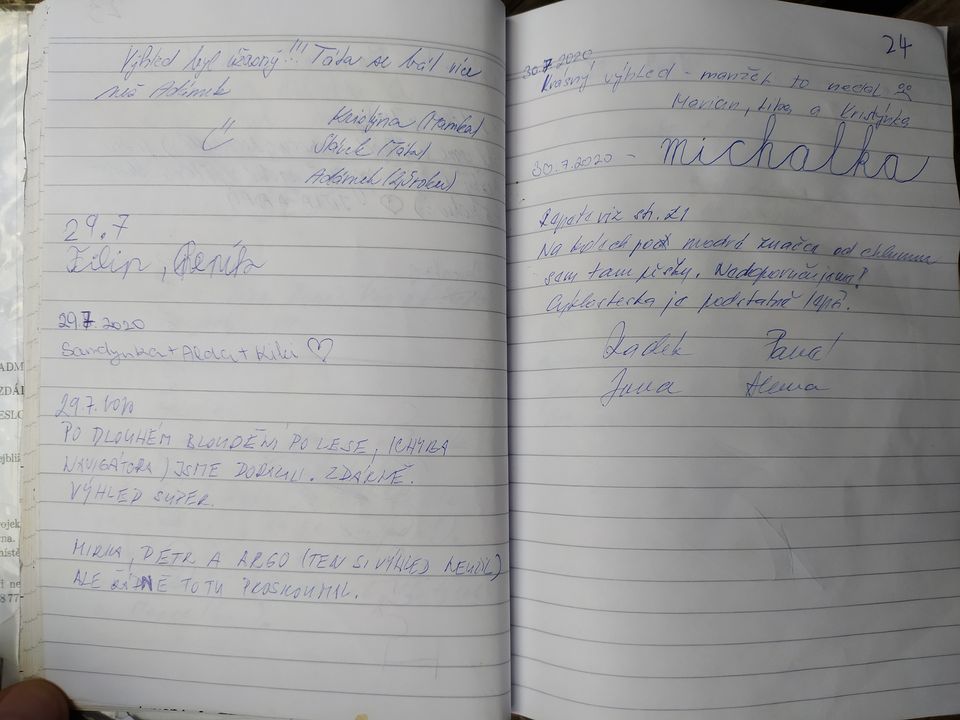 Výhled byl úžasný!!! Táta se bál více
než Adámek
Kristýna (Mamka)
(Táta)
Adámek
29.7
Filip,
29.7.2020
Sandynka + Alda + Kiki ♡
29.7.2020
PO DLOUHÉM BLOUDĚNÍ PO LESE, (CHYBA
NAVIGÁTORA) JSME DORAZILI. ZDÁRNĚ.
VÝHLED SUPER.
MIRKA, PETR A ARGO (TEN SI VÝHLED NEUŽIL)
ALE ŘÁDNĚ TO TU PROSKOUMAL.
24
30.7.2020
Krásný výhled - manžel to nedal
Marian, Liba a Kristýnka
30.7.2020 - michalka
viz str. 21
Na kolech pod modrá značce od chlumu
sam tam pěšky. Nedoporučujeme!
Cyklostezka je podstatně lepší.
Radek Pavel
Jana Alena